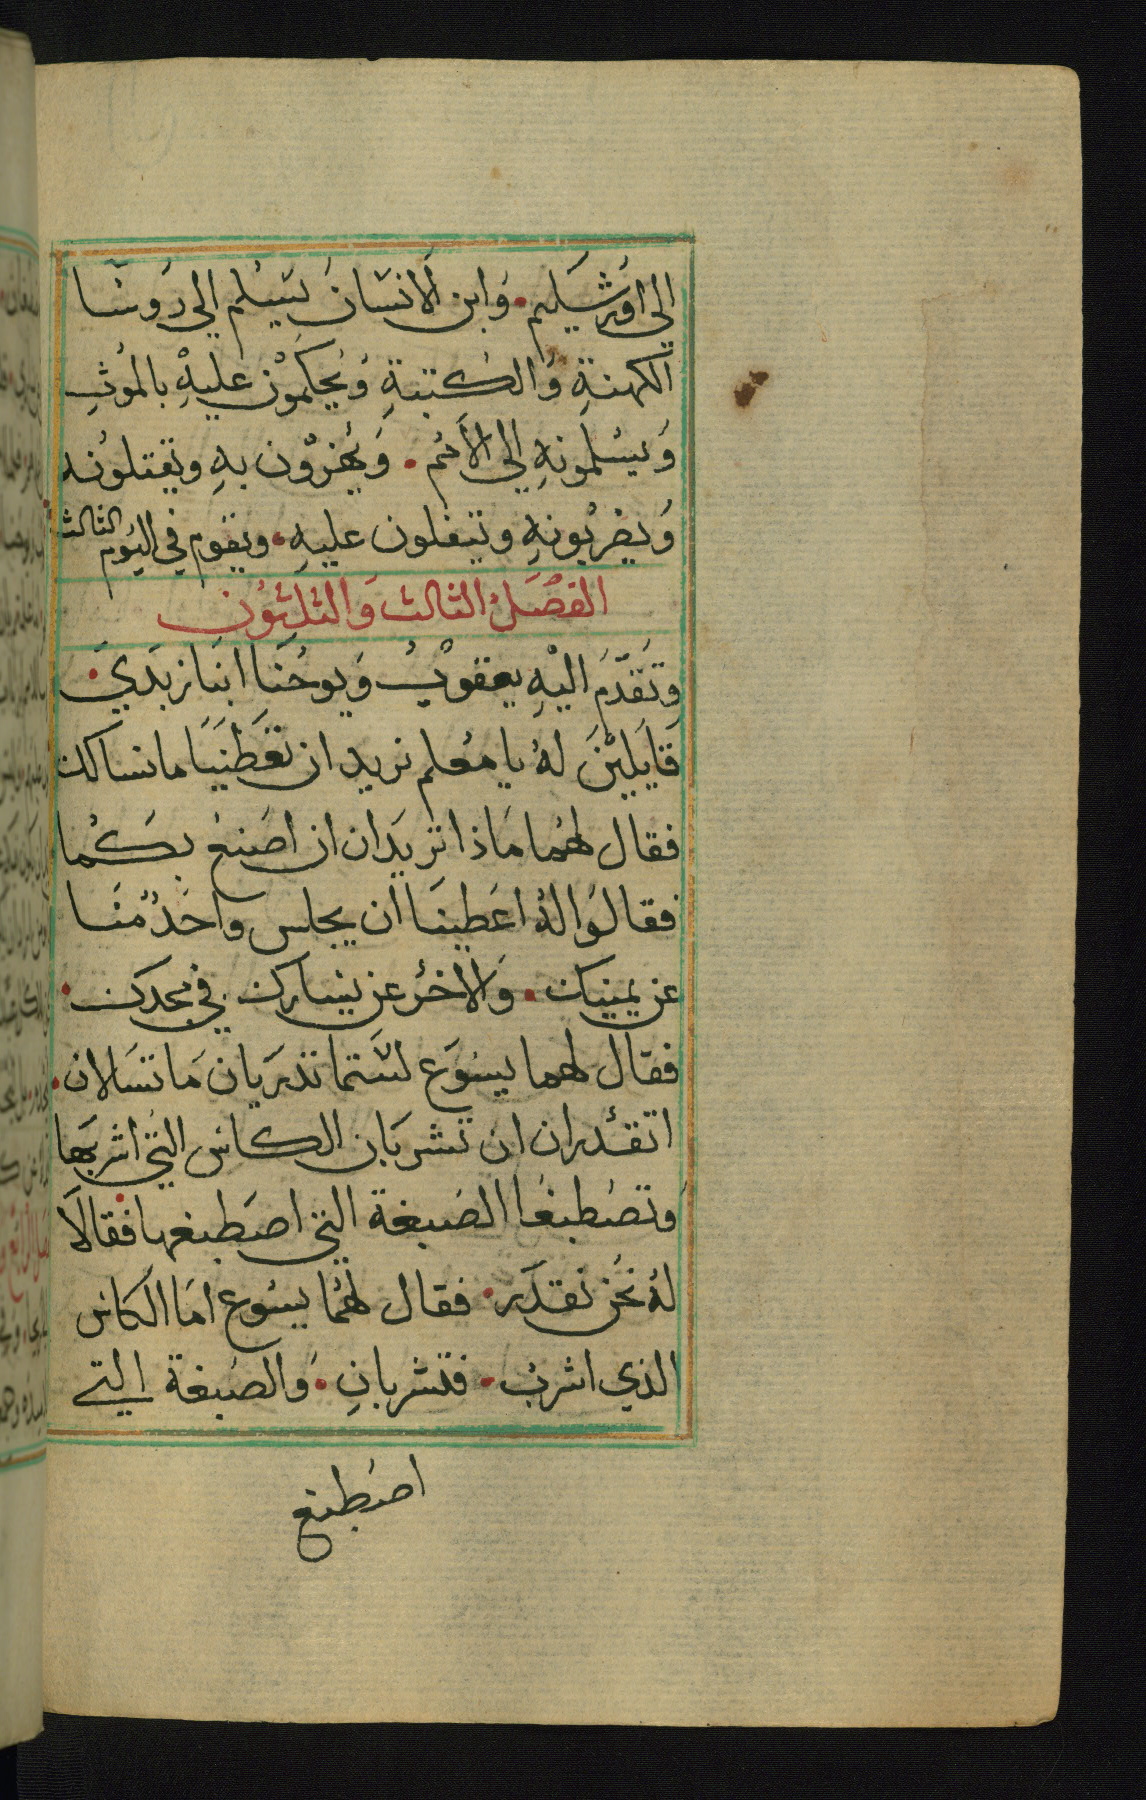 الي اورشليم. وَابن الانسَان يسَلم الي رَوسَا
الكهنةِ وَالكتبةِ وَيحكمُوْن عليهِْ بالمُوثِ
وَيسَلمونهِ الي الاُمُم. وَيُهزوُن بهِ ويَقتلوُنه
وَيضربُونهِ وتيفلون عليهِ. ويقوم في اليَوم الثالث
الفصَلُ الثالث وَالثلثوُن
وَتقدّمَ اليْهِ يعقوبُ وَيوحُنَا ابنَا زبَديَ.
قايَليْنَ لهُ يا مُعلم نريد ان تعَطيَنا ما نسالك
فقال لهُما مَاذا تريَدان ان اصَنع بكُما
فقالوَا لهُ اعَطينَا ان يجلس واحَدٌ منَا
عن يمينك. وَالاخرُ عن يسَارك في مجدك.
فقال لهما يسَوع لسَتما تدَريَان مَا تسَالان.
اتقدُران ان تشربَان الكاس التي اشربَها
وَتصُطبغَا الصَبغة التي اصَطبغها. فقالاَ
لهُ نحُن نقدَر. فقال لهُما يسَوع امَا الكاس
الذي اشربُ. فتشربانِ. وَالصَبغة التي
اصَطبغ